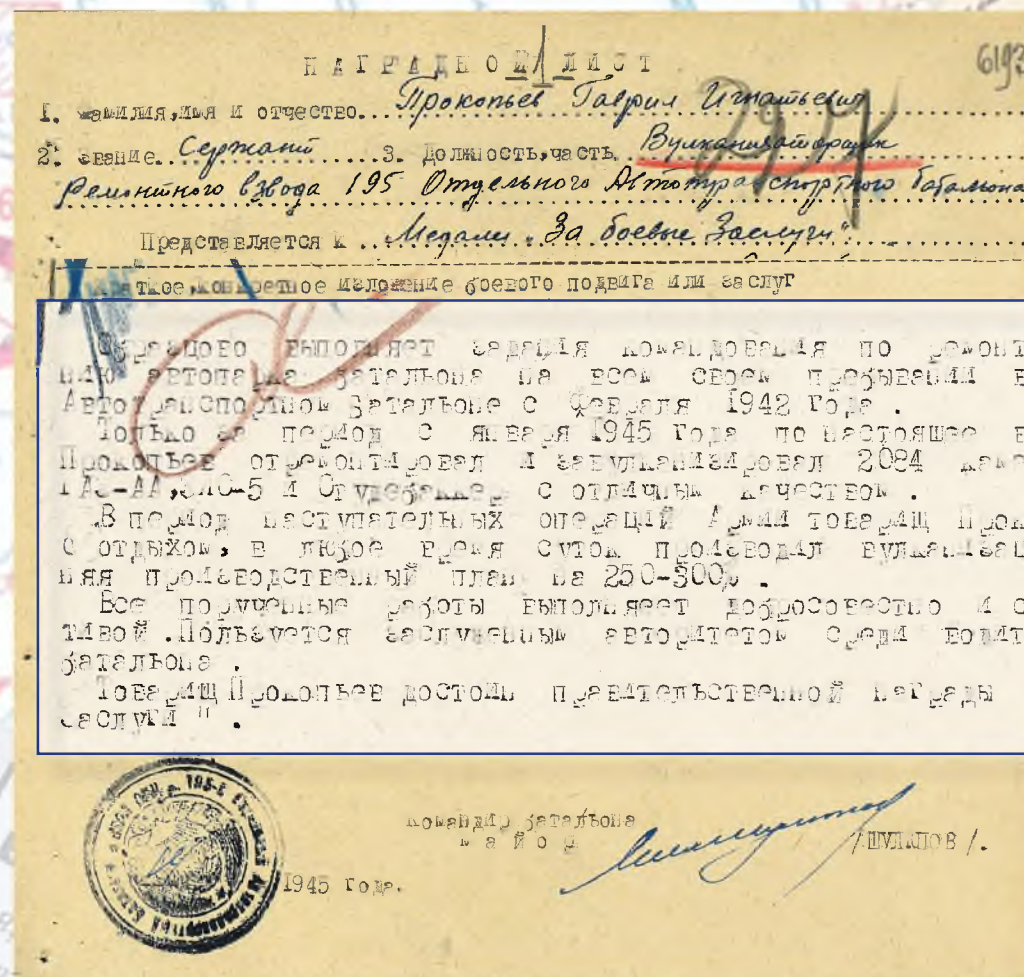 НАГРАДНОЙ ЛИСТ
6193
1. Фамилия, имя и отчество.. Прокопьев Гаврил Игнатьевич
2. Звание.. Сержант ..... 3. Должность, часть. Вулканизаторщик
Ремонтного взвода 195 Отдельного Автотранспортного батальона
Представляется к .. Медали „За боевые Заслуги".
Краткое, конкретное изложение боевого подвига или заслуг
Образцово выполняет задания командования по ремонт
нию автопарка батальона на всем своем пребывании в
Автотранспортном батальоне с Февраля 1942 года .
Только за период с января 1945 года по настоящее в
Прокопьев отремонтировал и завулканизировал 2084 каме
ГАЗ-АА, ЗИС-5 и Студебаккер с отличным качеством .
В период наступательных операций Армии товарищ Прок
с отдыхом, в любое время суток производил вулканизац
няя производственный план на 250-300% .
Все порученные работы выполняеет добросовестно и с
тивой .Пользуется заслуженным авторитетом среди водит
батальона .
Товарищ Прокопьев достоин правительственной награды
заслуги " .
Командир батальона
майор
/ШУЛЯПОВ/.
1945 года.